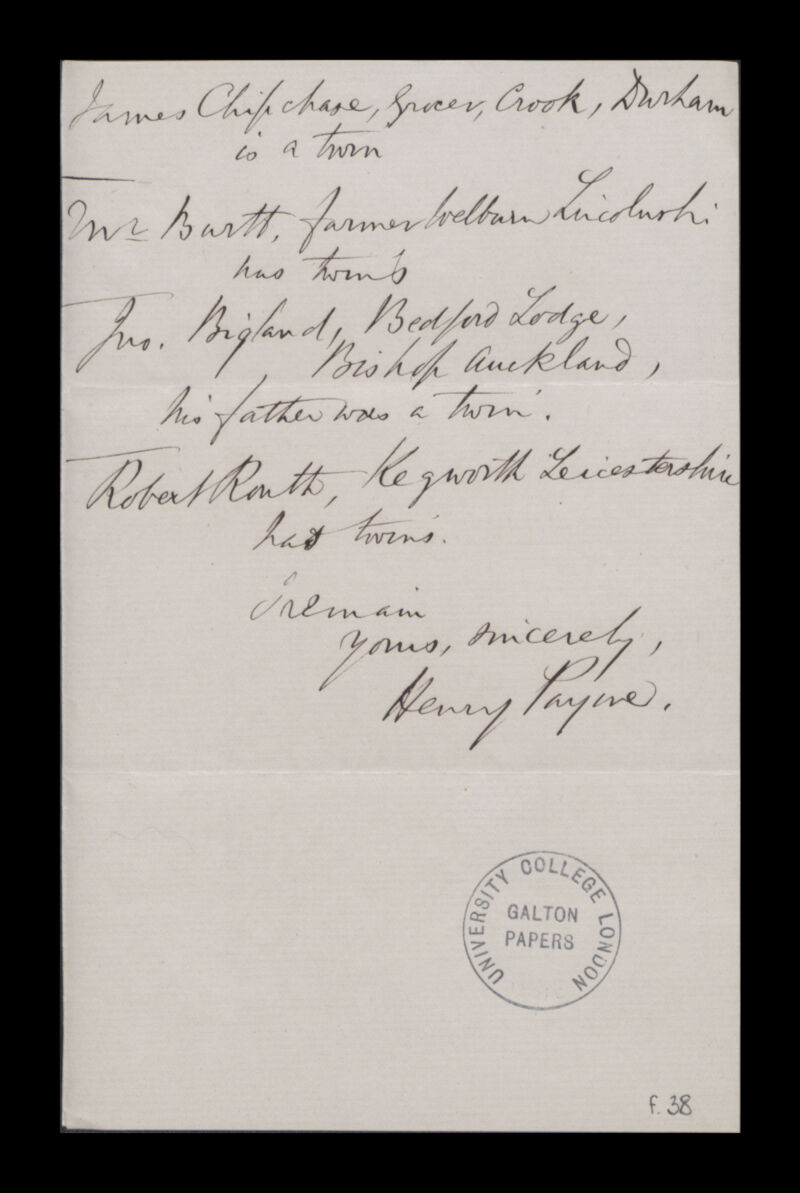 James Chipchase, Grocer, Crook, Durham
is a twin
Mr Bartt, farmer Welburn Lincolnshi.
has twins
Jno. Bigland, Bedford Lodge,
Bishop Auckland,
his father was a twin.
Robert Routh, Kegworth Leicestershire
has twins.
I remain
yours, sincerely,
Henry Payne.
UNIVERSITY COLLEGE LONDON
GALTON
PAPERS
f. 38